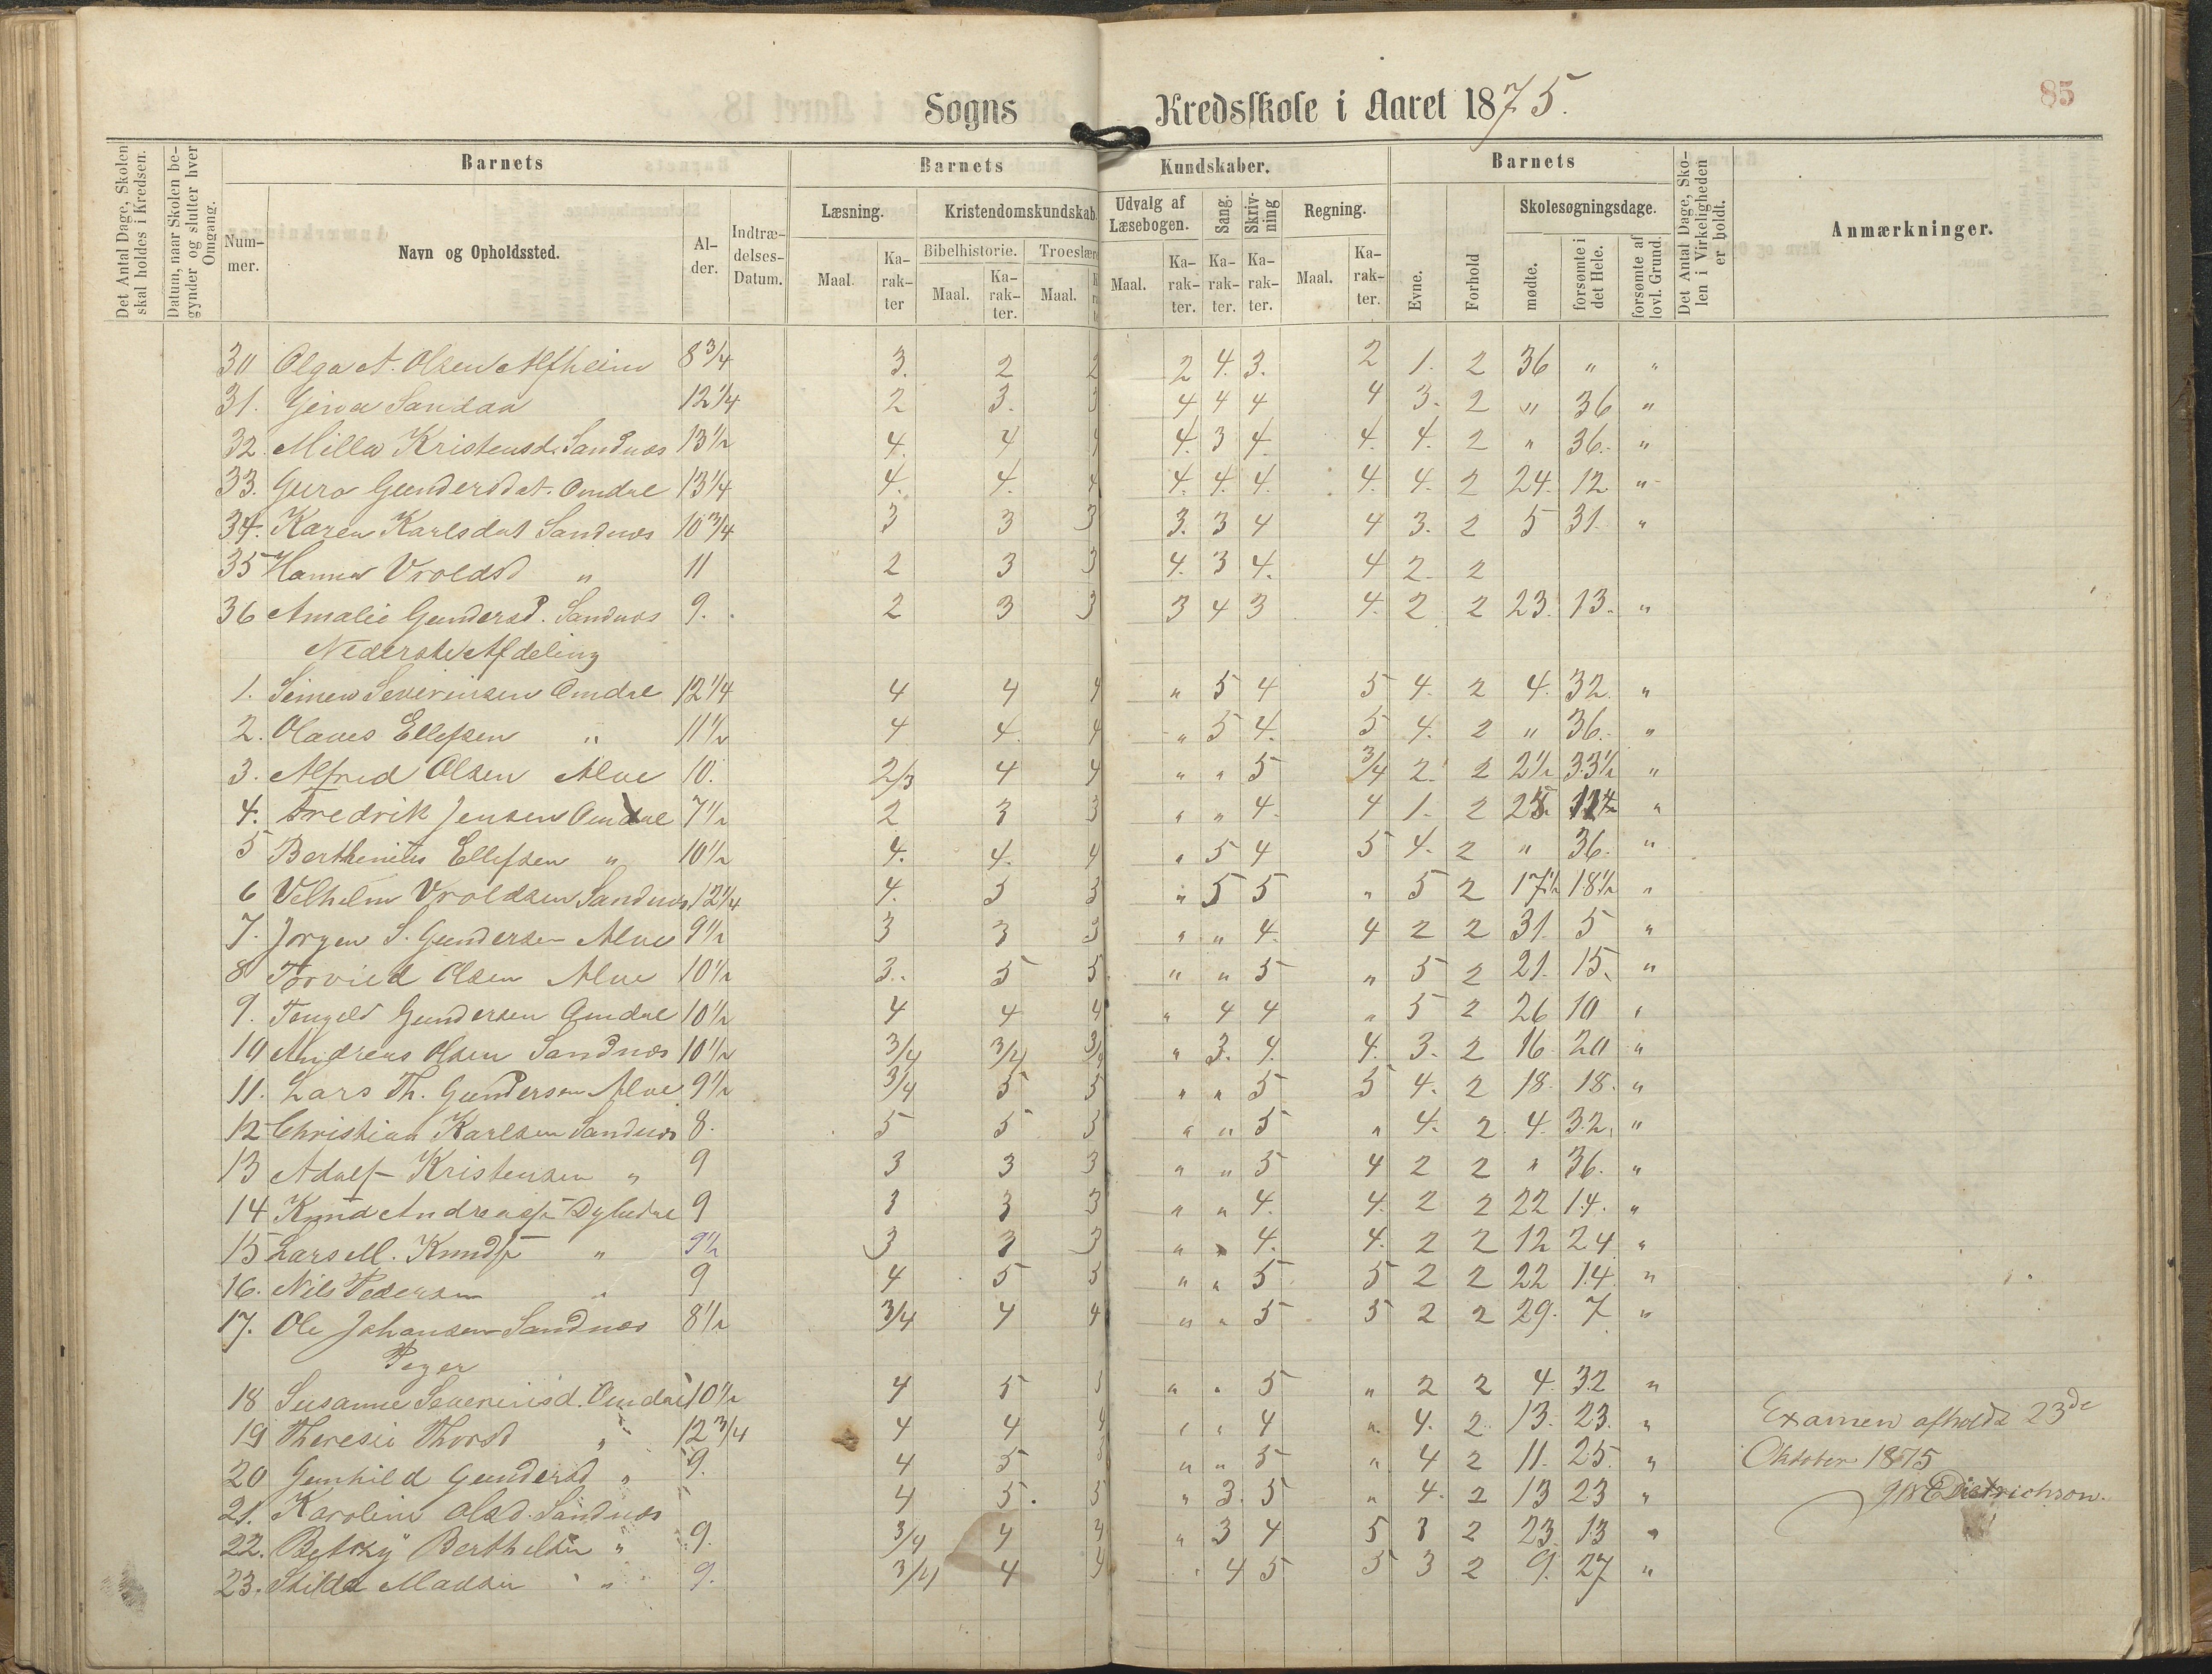 85
Sogns Kredsskole i Aaret 1875.
Det Antal Dage, Skolen skal holdes i Kredsen.
Datum, naar Skolen begynder og slutter hver Omgang.
Barnets
Barnets Kundskaber.
Barnets
Det Antal Dage, Skolen i Virkeligheden er holdt.
Anmærkninger.
Nummer.
Navn og Opholdssted.
Alder.
Indtrædelses-Datum.
Læsning.
Kristendomskundskab.
Udvalg af Læsebogen.
Sang.
Skrivning
Regning.
Evne.
Forhold
Skolesøgningsdage.
Bibelhistorie.
Troeslære
Maal. Karakter Maal. Karakter. Maal. Maal. Karakter. Karakter. Karakter. Maal. Karakter.
mødte.
forsømte i det Hele.
forsømte af lovl. Grund.
30 Olga A. Olsen Alfheim 8 3/4 3. 2 2 2 4. 3. 2 1. 2 36 " "
31. Gina Sandaa 12 1/4 2 3. 3 4 4 4 4 3. 2 " 36 "
32. Milla Kristensd. Sandnæs 13 1/2 4. 4 4 4. 3 4. 4. 4. 2 " 36. "
33. Guro Gundersdat. Omdal 13 1/4 4. 4. 4 4. 4. 4. 4. 4. 2 24. 12 "
34. Karen Karlsdat Sandnæs 10 3/4 3 3 3 3. 3 4 4 3. 2 5 31. "
35 Hanna Vroldsd " 11 2 3 3 4. 3 4. 4 2. 2
36 Amalie Gundersd. Sandnæs 9. 2 3 3 3 4 3 4. 2 2 23. 13. "
Nederste Afdeling
1. Simen Severinsen Omdal 12 1/4 4 4 4 " 5 4 5 4. 2 4. 32. "
2. Olaves Ellefsen " 11 1/2 4 4. 4 " 5 4. 5 4. 2 " 36. "
3. Alfred Olsen Alve 10. 2/3 4 4 " " 5 3/4 2. 2 2 1/2 33 1/2 "
4. Fredrik Jensen Omdal 7 1/2 2 3 3 " " 4. 4 1. 2 "
5 Berthenius Ellefsen " 10 1/2 4. 4. 4 " 5 4 5 4. 2 " 36. "
6 Velhelm Vroldsen Sandnæs 12 1/4 4. 5 5 " 5 5 " 5 2 17 1/2 18 1/2 "
7. Jørgen S. Gundersen Alve 9 1/2 3 3 3 " " 4. 4 2 2 31. 5 "
8 Torvild Olsen Alve 10 1/2 3. 5 5 " " 5 " 5 2 21. 15. "
9. Gundersen Omdal 10 1/2 4 4 4 " 4 4 " 5 2 26 10 "
10 Andreas Olsen Sandnæs 10 1/2 3/4 3/4 3/4 " 3. 4. 4. 3. 2 16 20 "
11. Lars Th. Gundersen Alve 9 1/2 3/4 5 5 " " 5 5 4. 2 18. 18. "
12 Christian Karlsen Sandnæs 8. 5 5 5 " " 5 " 4. 2. 4. 32. "
13 Adolf Kristensen " 9 3 3 3 " " 5 4 2 2 " 36. "
14 Knud Andreass. 9 3 3 3 " " 4. 4. 2 2 22 14. "
15 Lars M. Knuds. " 9 1/2 3 3 3 " " 4. 4. 2 2 12 24 "
16. Nils Pedersen " 9 4 5 5 " " 5 5 2 2 22 14. "
17. Ole Johansen Sandnæs 8 1/2 3/4 4 4 " " 5 5 2 2 29. 7 "
Peger
18 Susanne Severinsd. Omdal 10 1/2 4 5 5 " " 5 " 2 2 4. 32 "
19 Theresie Thorsd " 12 3/4 4 4 4 " " 4 " 4. 2 13. 23. "
20 Gunhild Gundersd " 9. 4 5 5 " " 5 " 4 2 11. 25. "
21. Karolin Olsd. Sandnæs 4 5. 5 " 3. 5 " 4. 2 13 23 "
22. Betszy Berthelsen " 9. 3/4 4 4 " 3 4 5 3 2 23. 13 "
23. Hilda Madsen " 9. 3/4 4 4 " 4 5 5 3 2 9. 27 "
Examen afholdt 23de
Oktober 1875
Dietrichson.